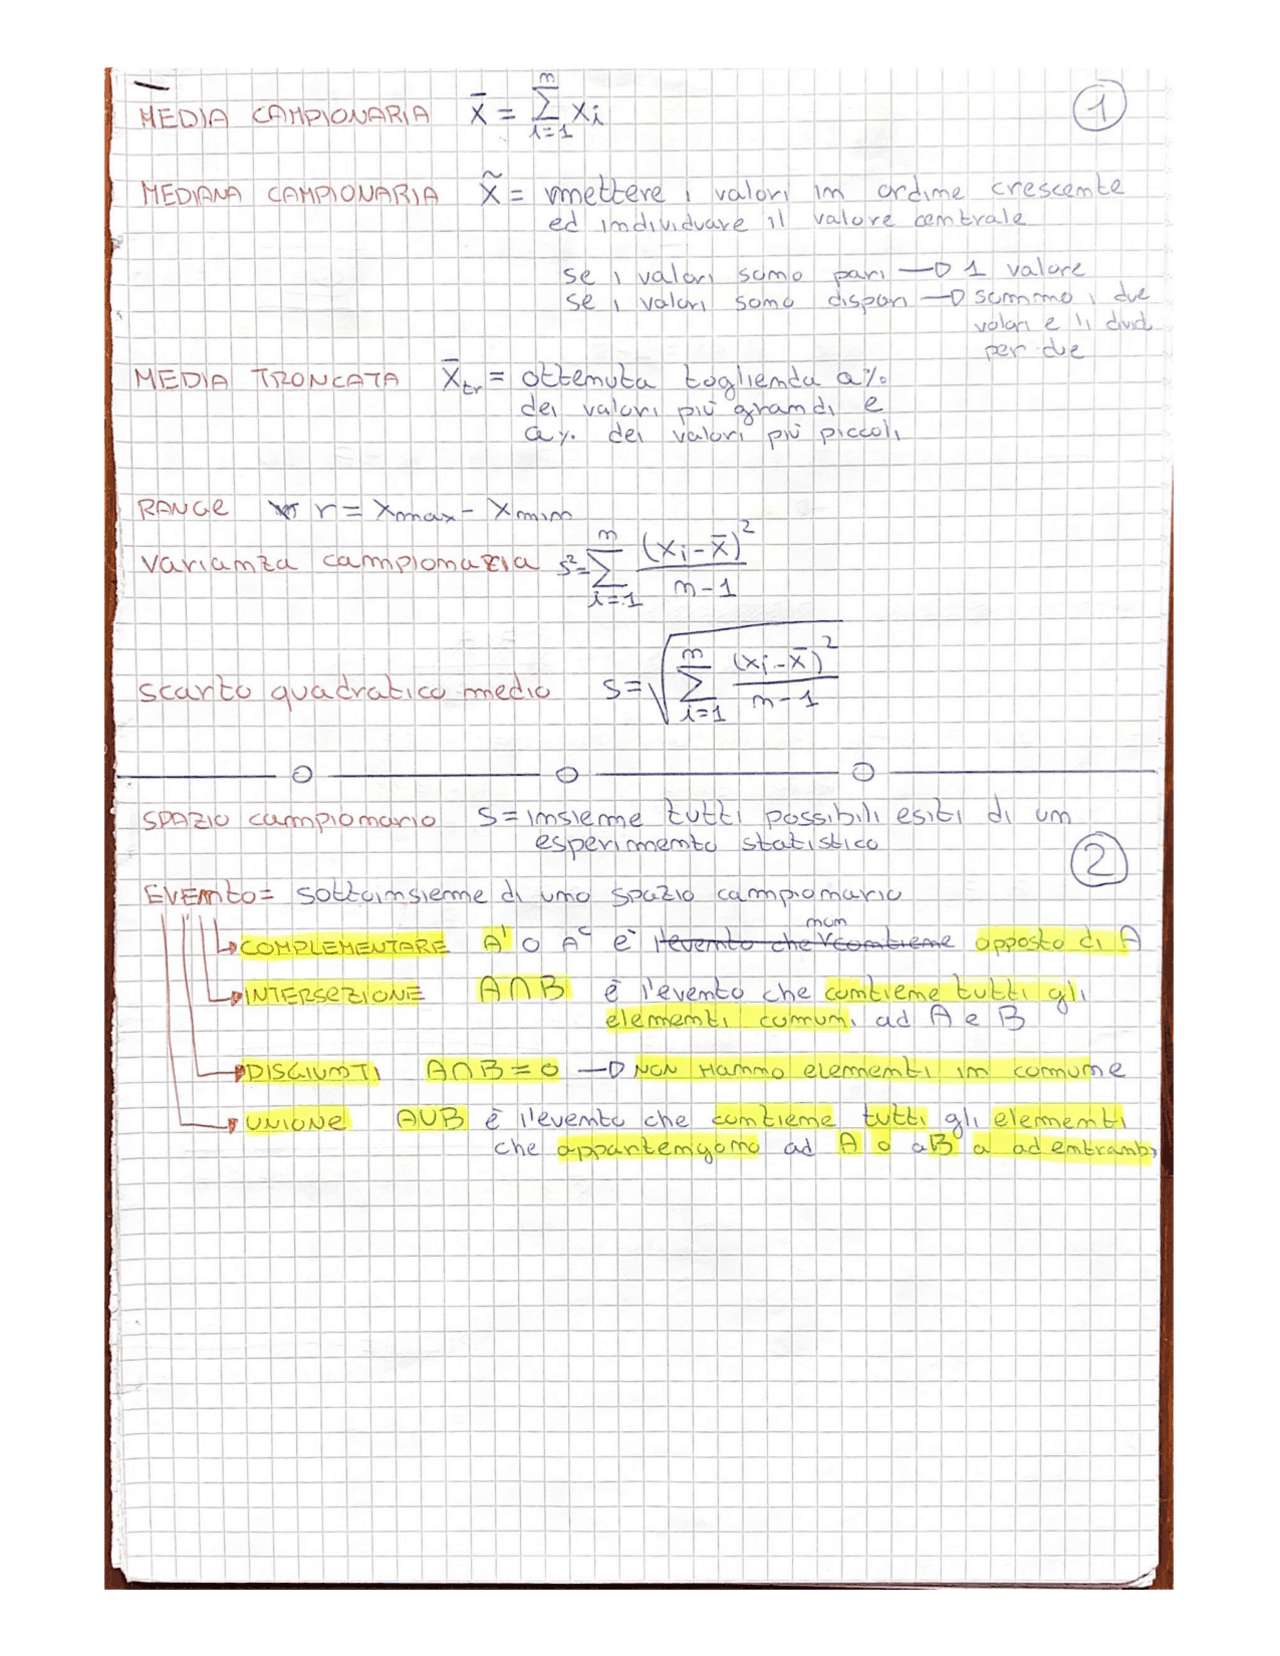 MEDIA CAMPIONARIA x̄ = ∑ᵢ₌₁ⁿ xᵢ
1
MEDIANA CAMPIONARIA x̃ = mettere i valori in ordine crescente
ed individuare il valore centrale
se i valori sono pari → 1 valore
se i valori sono dispari → sommo i due
valori e li divid
per due
MEDIA TRONCATA x̄tr = ottenuta togliendo a%
dei valori più grandi e
a% dei valori più piccoli
RANGE r = xmax - xmin
varianza campionaria s² = ∑ᵢ₌₁ⁿ (xᵢ - x̄)² / n-1
scarto quadratico medio s = √(∑ᵢ₌₁ⁿ (xᵢ - x̄)² / n-1)
SPAZIO campionario S = insieme tutti possibili esiti di un
esperimento statistico
2
EVENTO = sottoinsieme di uno spazio campionario
non
COMPLEMENTARE A' o Aᶜ è l'evento che contiene opposto di A
INTERSEZIONE A∩B è l'evento che contiene tutti gli
elementi comuni ad A e B
DISGIUNTI A∩B = 0 → NON Hanno elementi in comune
UNIONE A∪B è l'evento che contiene tutti gli elementi
che appartengono ad A o a B o ad entrambi